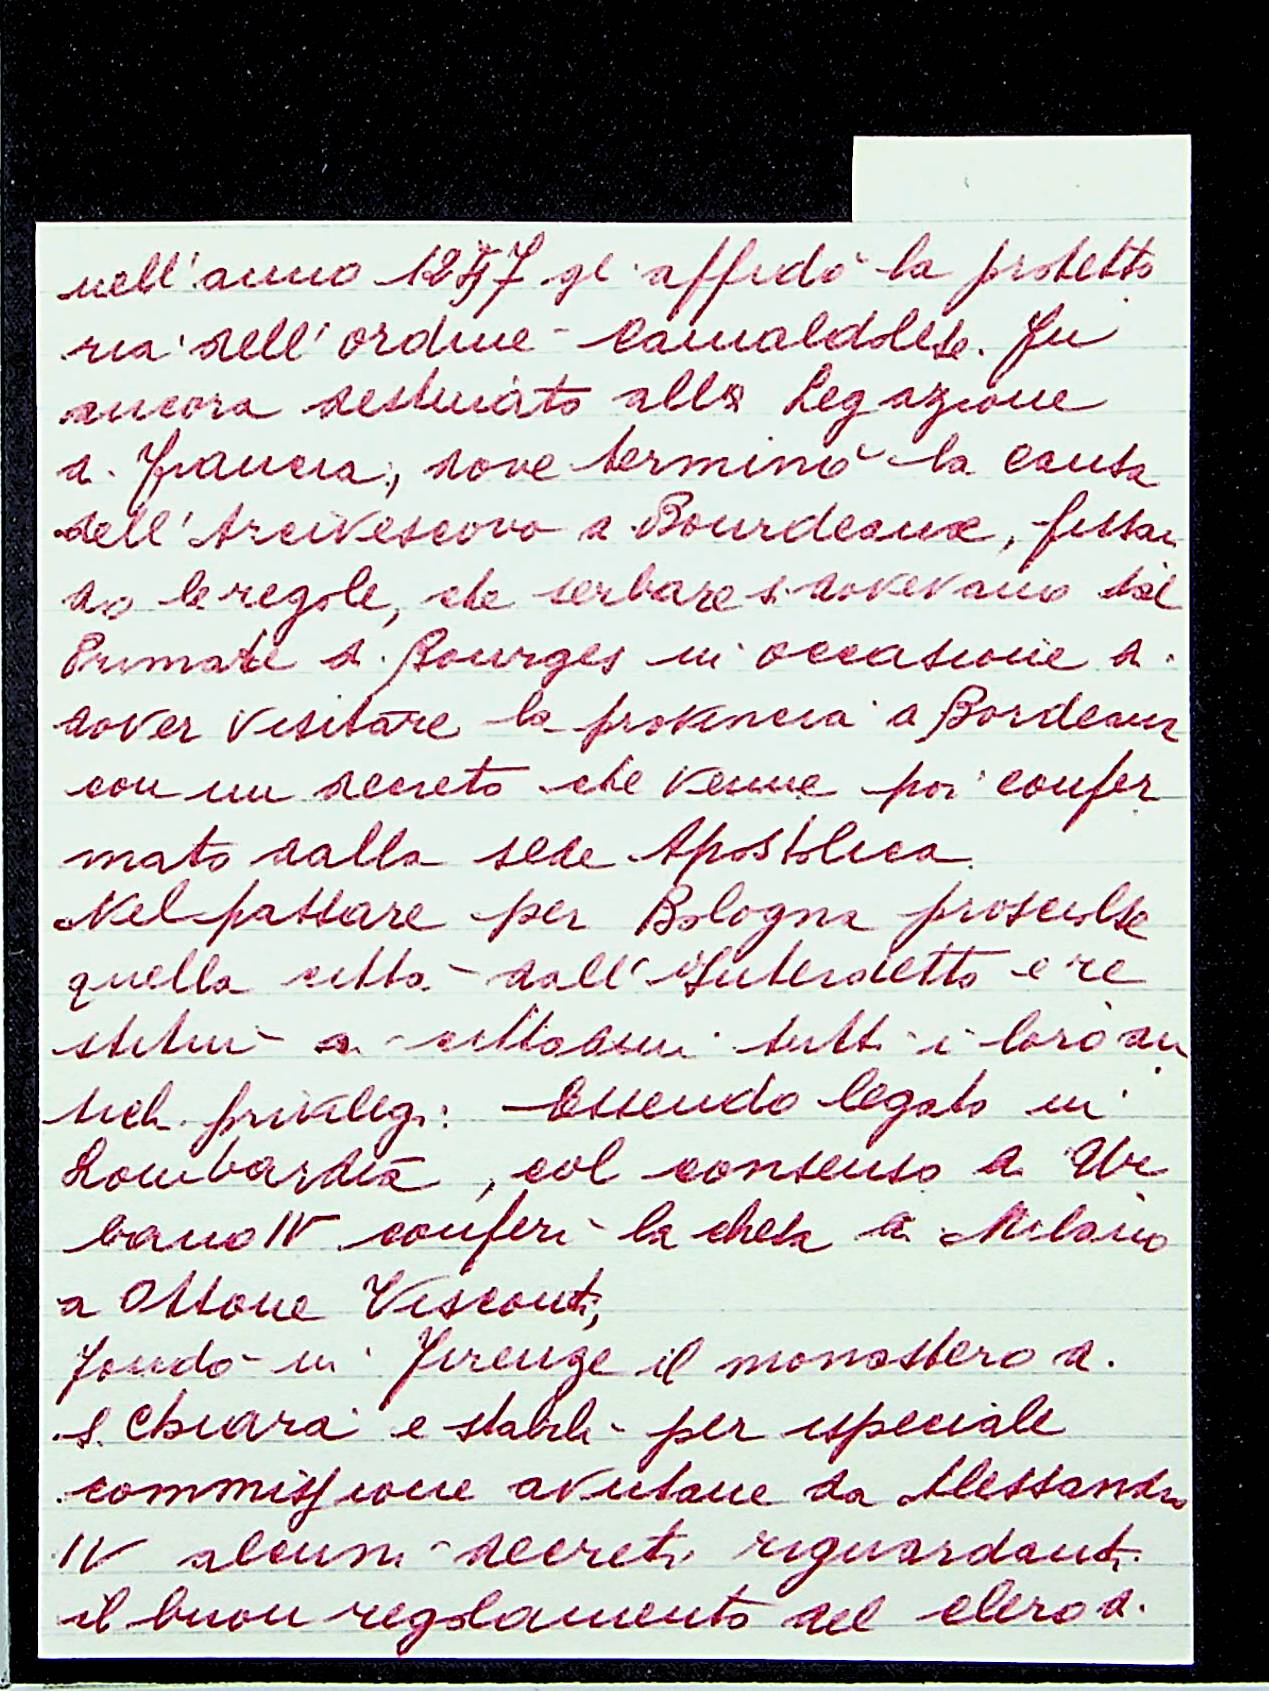 nell'anno 1257 gli affidò la protetto
ria dell'ordine Camaldolese. Fu
ancora destinato alla Legazione
di Francia, dove terminò la causa
dell'Arcivescovo di Bourdeaux, fissan
do le regole, che serbare si dovevano dal
Primate di Bourges in occasione di
dover visitare la provincia di Bordeaux
con un decreto che venne poi confer
mato dalla sede Apostolica.
Nel passare per Bologna prosciolse
quella città dall'Interdetto e re
stituì ai cittadini tutti i loro an
tichi privilegi: Essendo legato in
Lombardia, col consenso di Ur
bano IV conferì la chiesa di Milano
a Ottone Visconti,
fondò in Firenze il monastero di
S. Chiara e stabilì per ispeciale
commissione avutane da Alessandro
IV alcuni decreti riguardanti
il buon regolamento del clero di